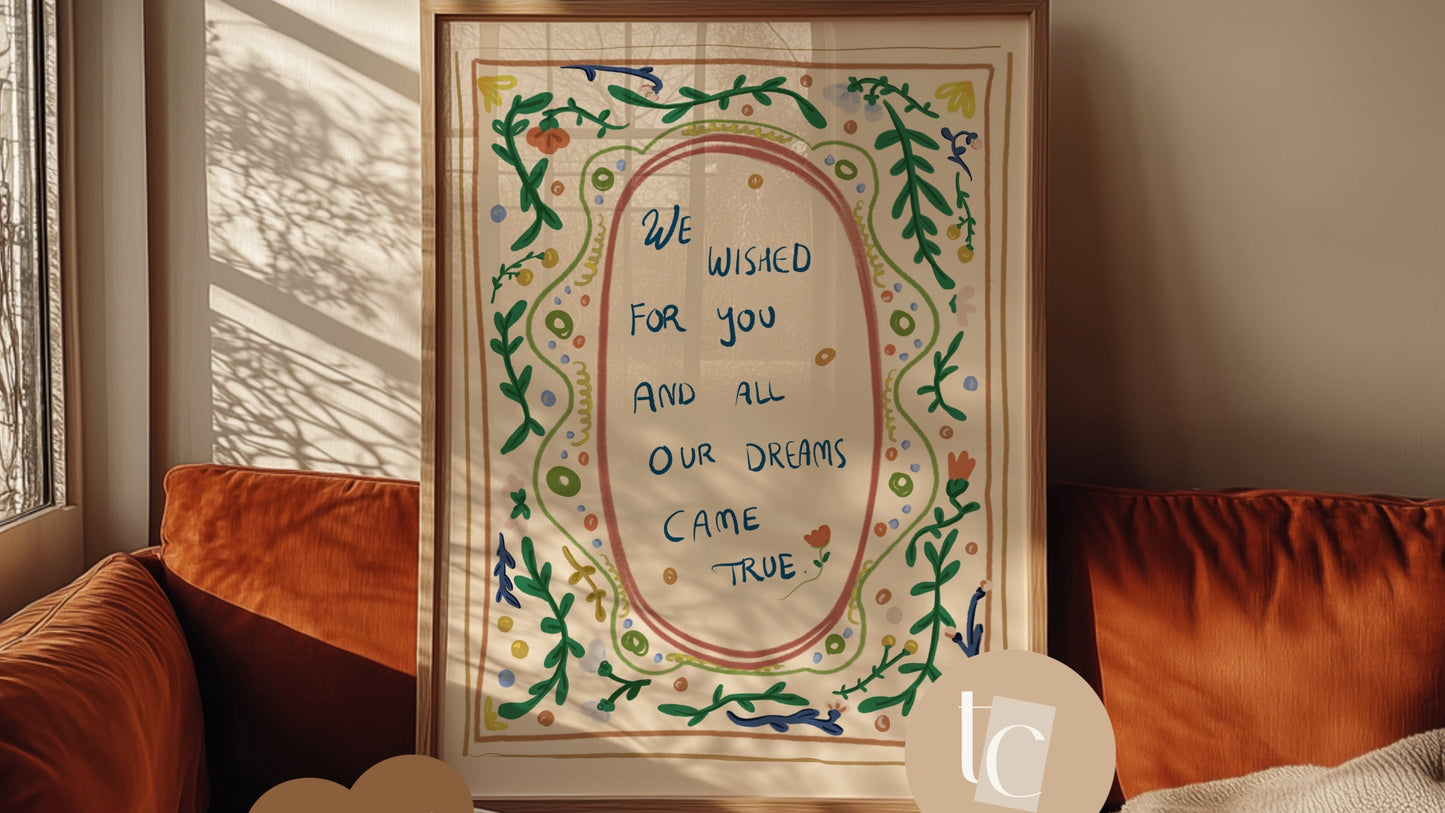 WE
WISHED
FOR YOU
AND ALL
OUR DREAMS
CAME
TRUE.
tc